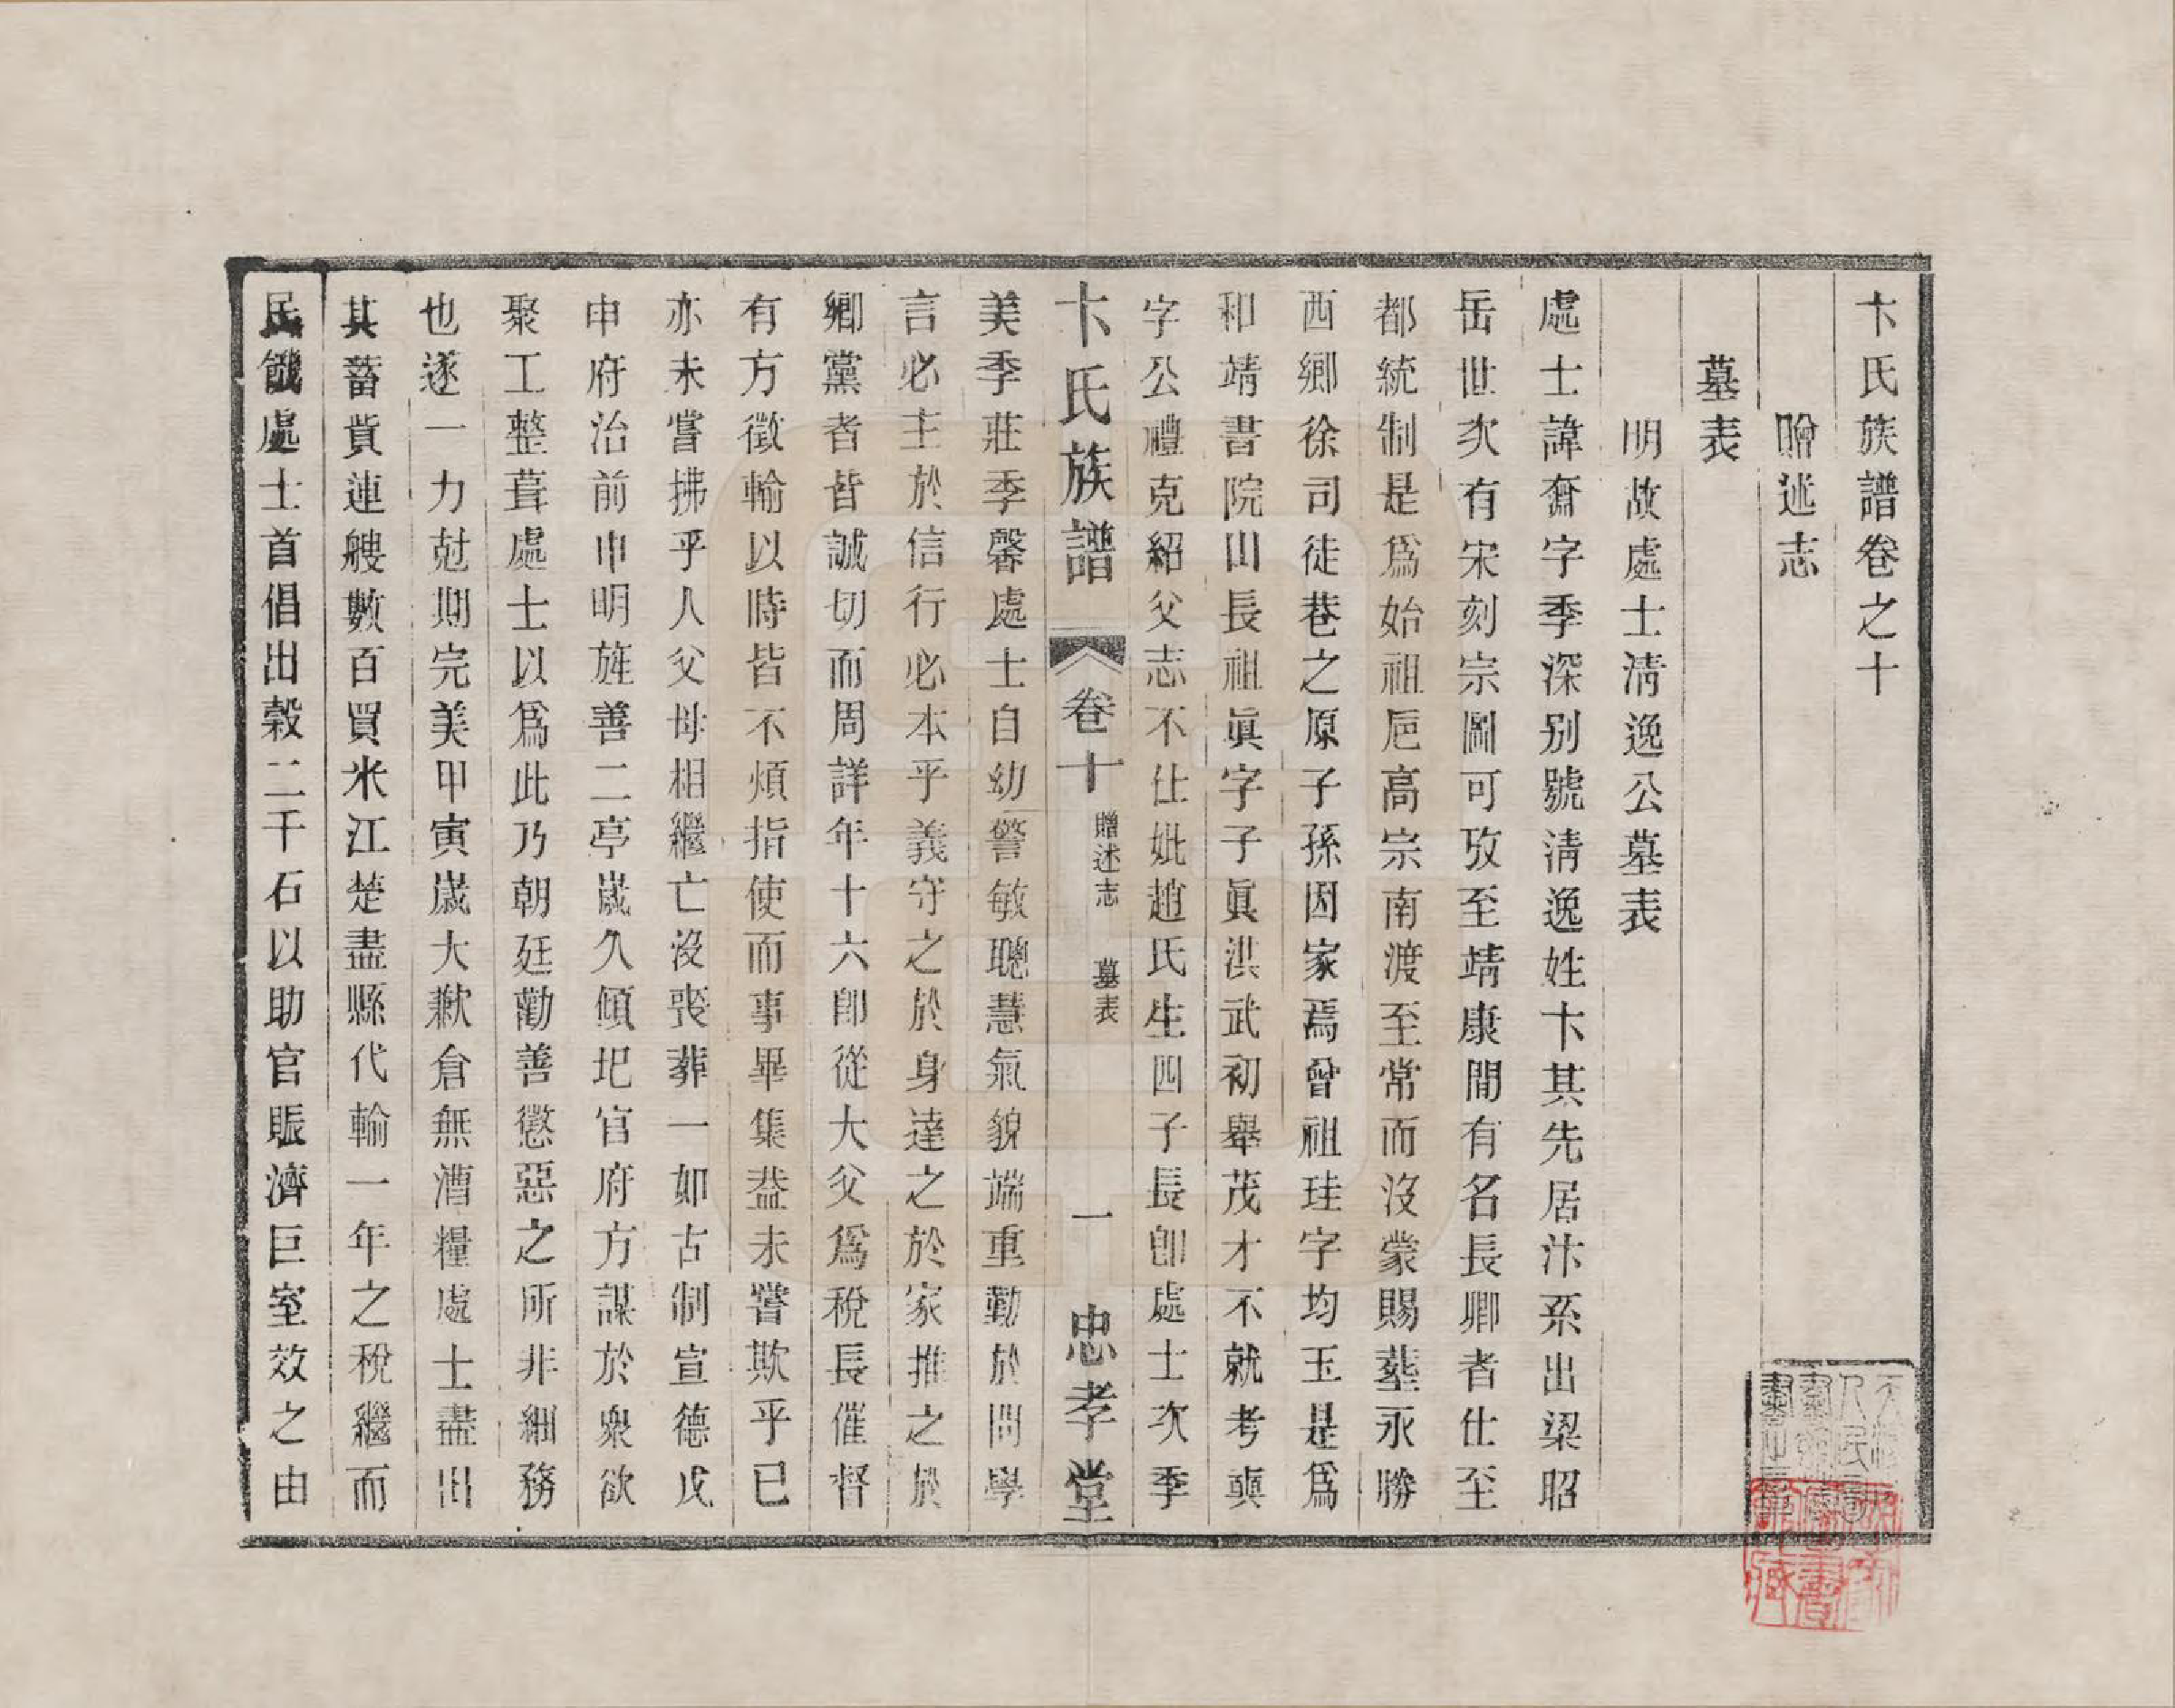 卞氏族譜卷之十
贈述志
墓表
明故處士淸逸公墓表
處士諱奫字季深别號淸逸姓卞其先居汴系出梁昭
岳世次有宋刻宗圖可攷至靖康間有名長卿者仕至
都統制是爲始祖扈高宗南渡至常而沒蒙賜塟永勝
西鄉徐司徒巷之原子孫因家焉曾祖珪字均玉是爲
和靖書院山長祖眞字子眞洪武初舉茂才不就考奭
字公禮克紹父志不仕妣趙氏生四子長卽處士次季
卞氏族譜 卷十 贈述志 墓表 一 忠孝堂
美季莊季馨處士自幼警敏聰慧氣貌端重勤於問學
言必主於信行必本乎義守之於身達之於家推之於
鄉黨者皆誠切而周詳年十六卽從大父爲稅長催督
有方徵輸以時皆不煩指使而事畢集益未嘗欺乎已
亦未嘗拂乎人父母相繼亡沒喪葬一如古制宣德戊
申府治前申明旌善二亭歲久傾圯官府方謀於衆欲
聚工整葺處士以爲此乃朝廷勸善懲惡之所非細務
也遂一力尅期完美甲寅歲大歉倉無漕糧處士盡出
其蓄貲連艘數百買米江楚盡縣代輸一年之稅繼而
民饑處士首倡出穀二千石以助官賑濟巨室效之由